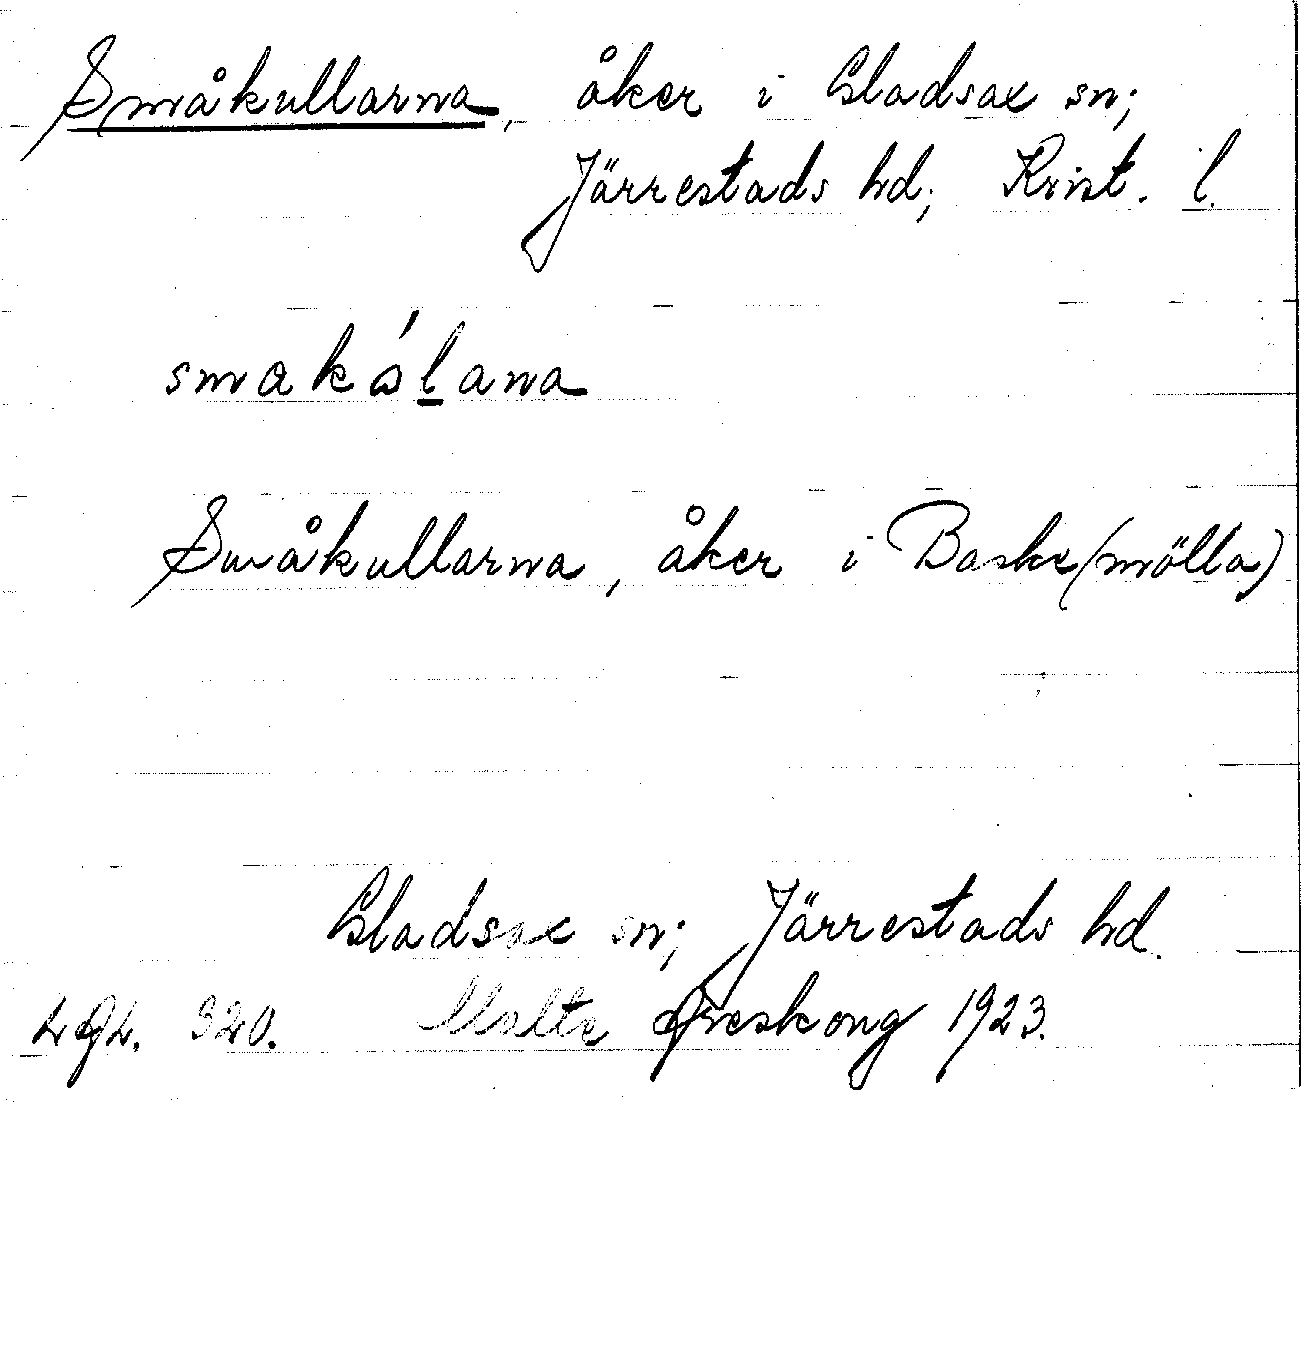 Småkullarna, åker i Gladsax sn;
Järrestads hd; Krist. l.
smakálana
Småkullarna, åker i Baske(mölla)
Gladsax sn; Järrestads hd.
320. Malte Areskoug 1923.